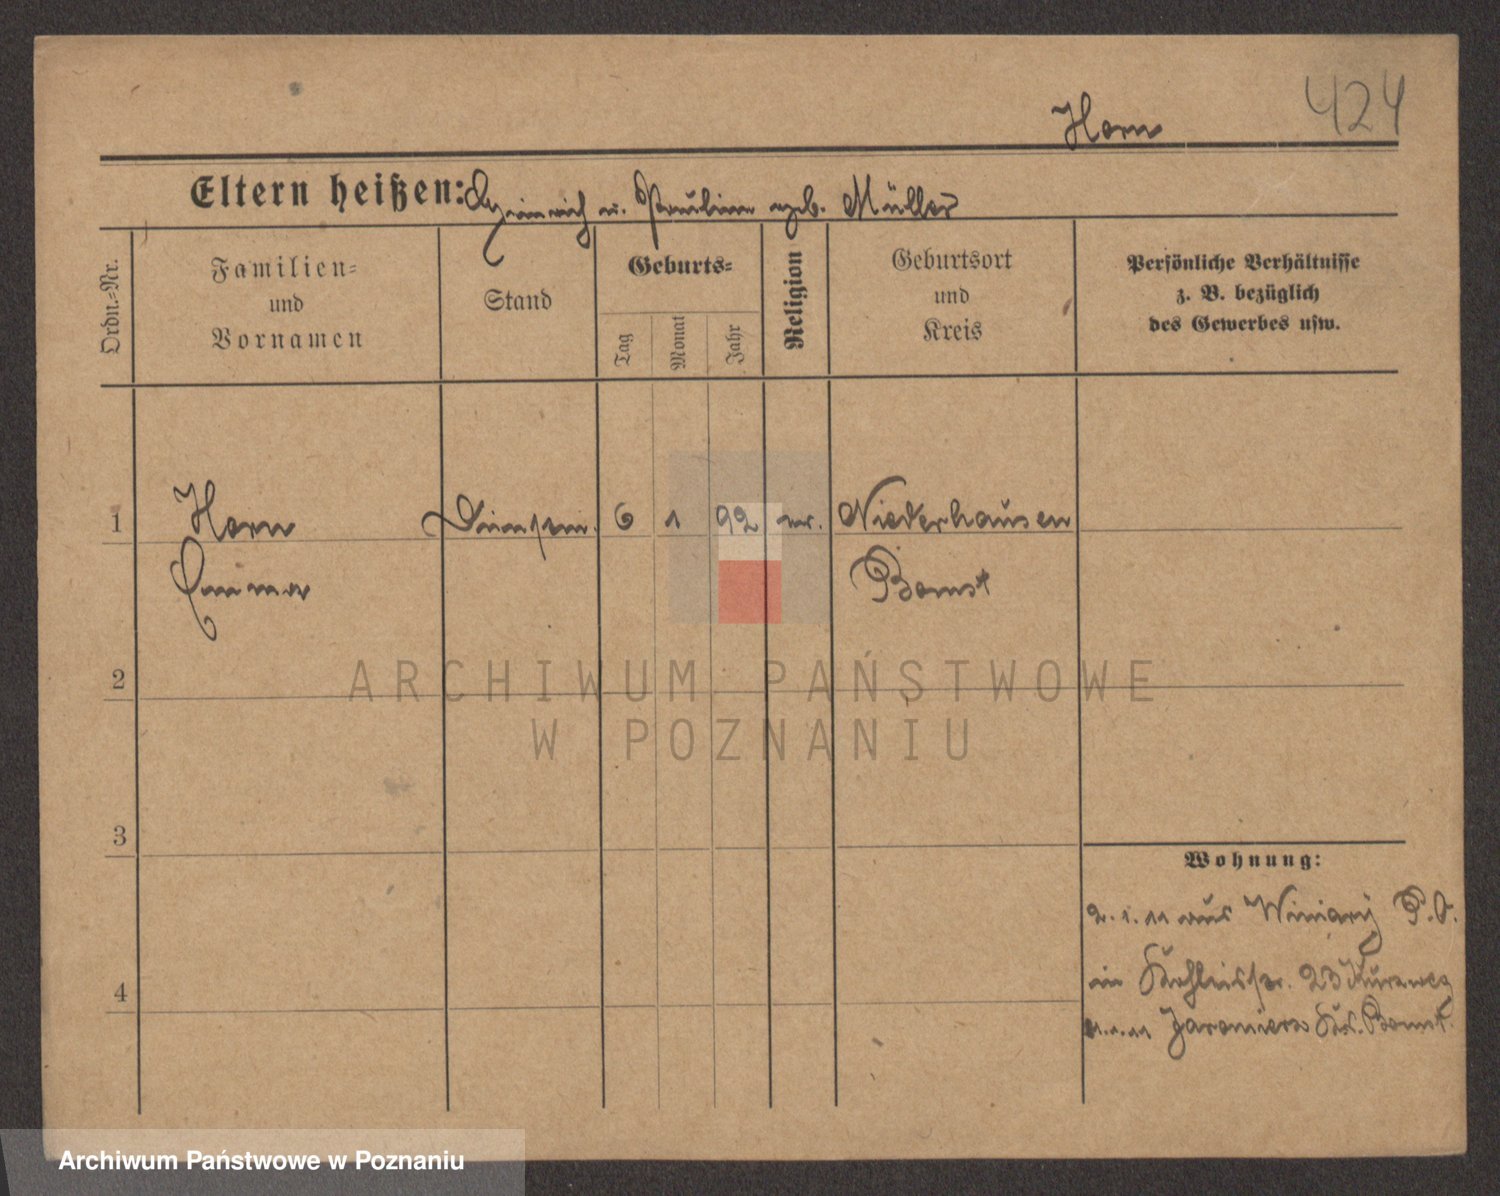 424
Horn
Eltern heißen: Heinrich u. Pauline geb. Müller
Ordn.-Nr.
Familien-
und
Vornamen
Stand
Geburts-
Tag
Monat
Jahr
Religion
Geburtsort
und
Kreis
Persönliche Verhältnisse
z. B. bezüglich
des Gewerbes usw.
1
Horn
Emma
6
1
92
ev.
Niederhausen
Bomst
2
ARCHIWUM PAŃSTWOWE
W POZNANIU
3
4
Wohnung:
2.1.11 aus Winiary P.O.
in 23 Kurzweg
1.11 Jaromierz Krs. Bomst.
Archiwum Państwowe w Poznaniu